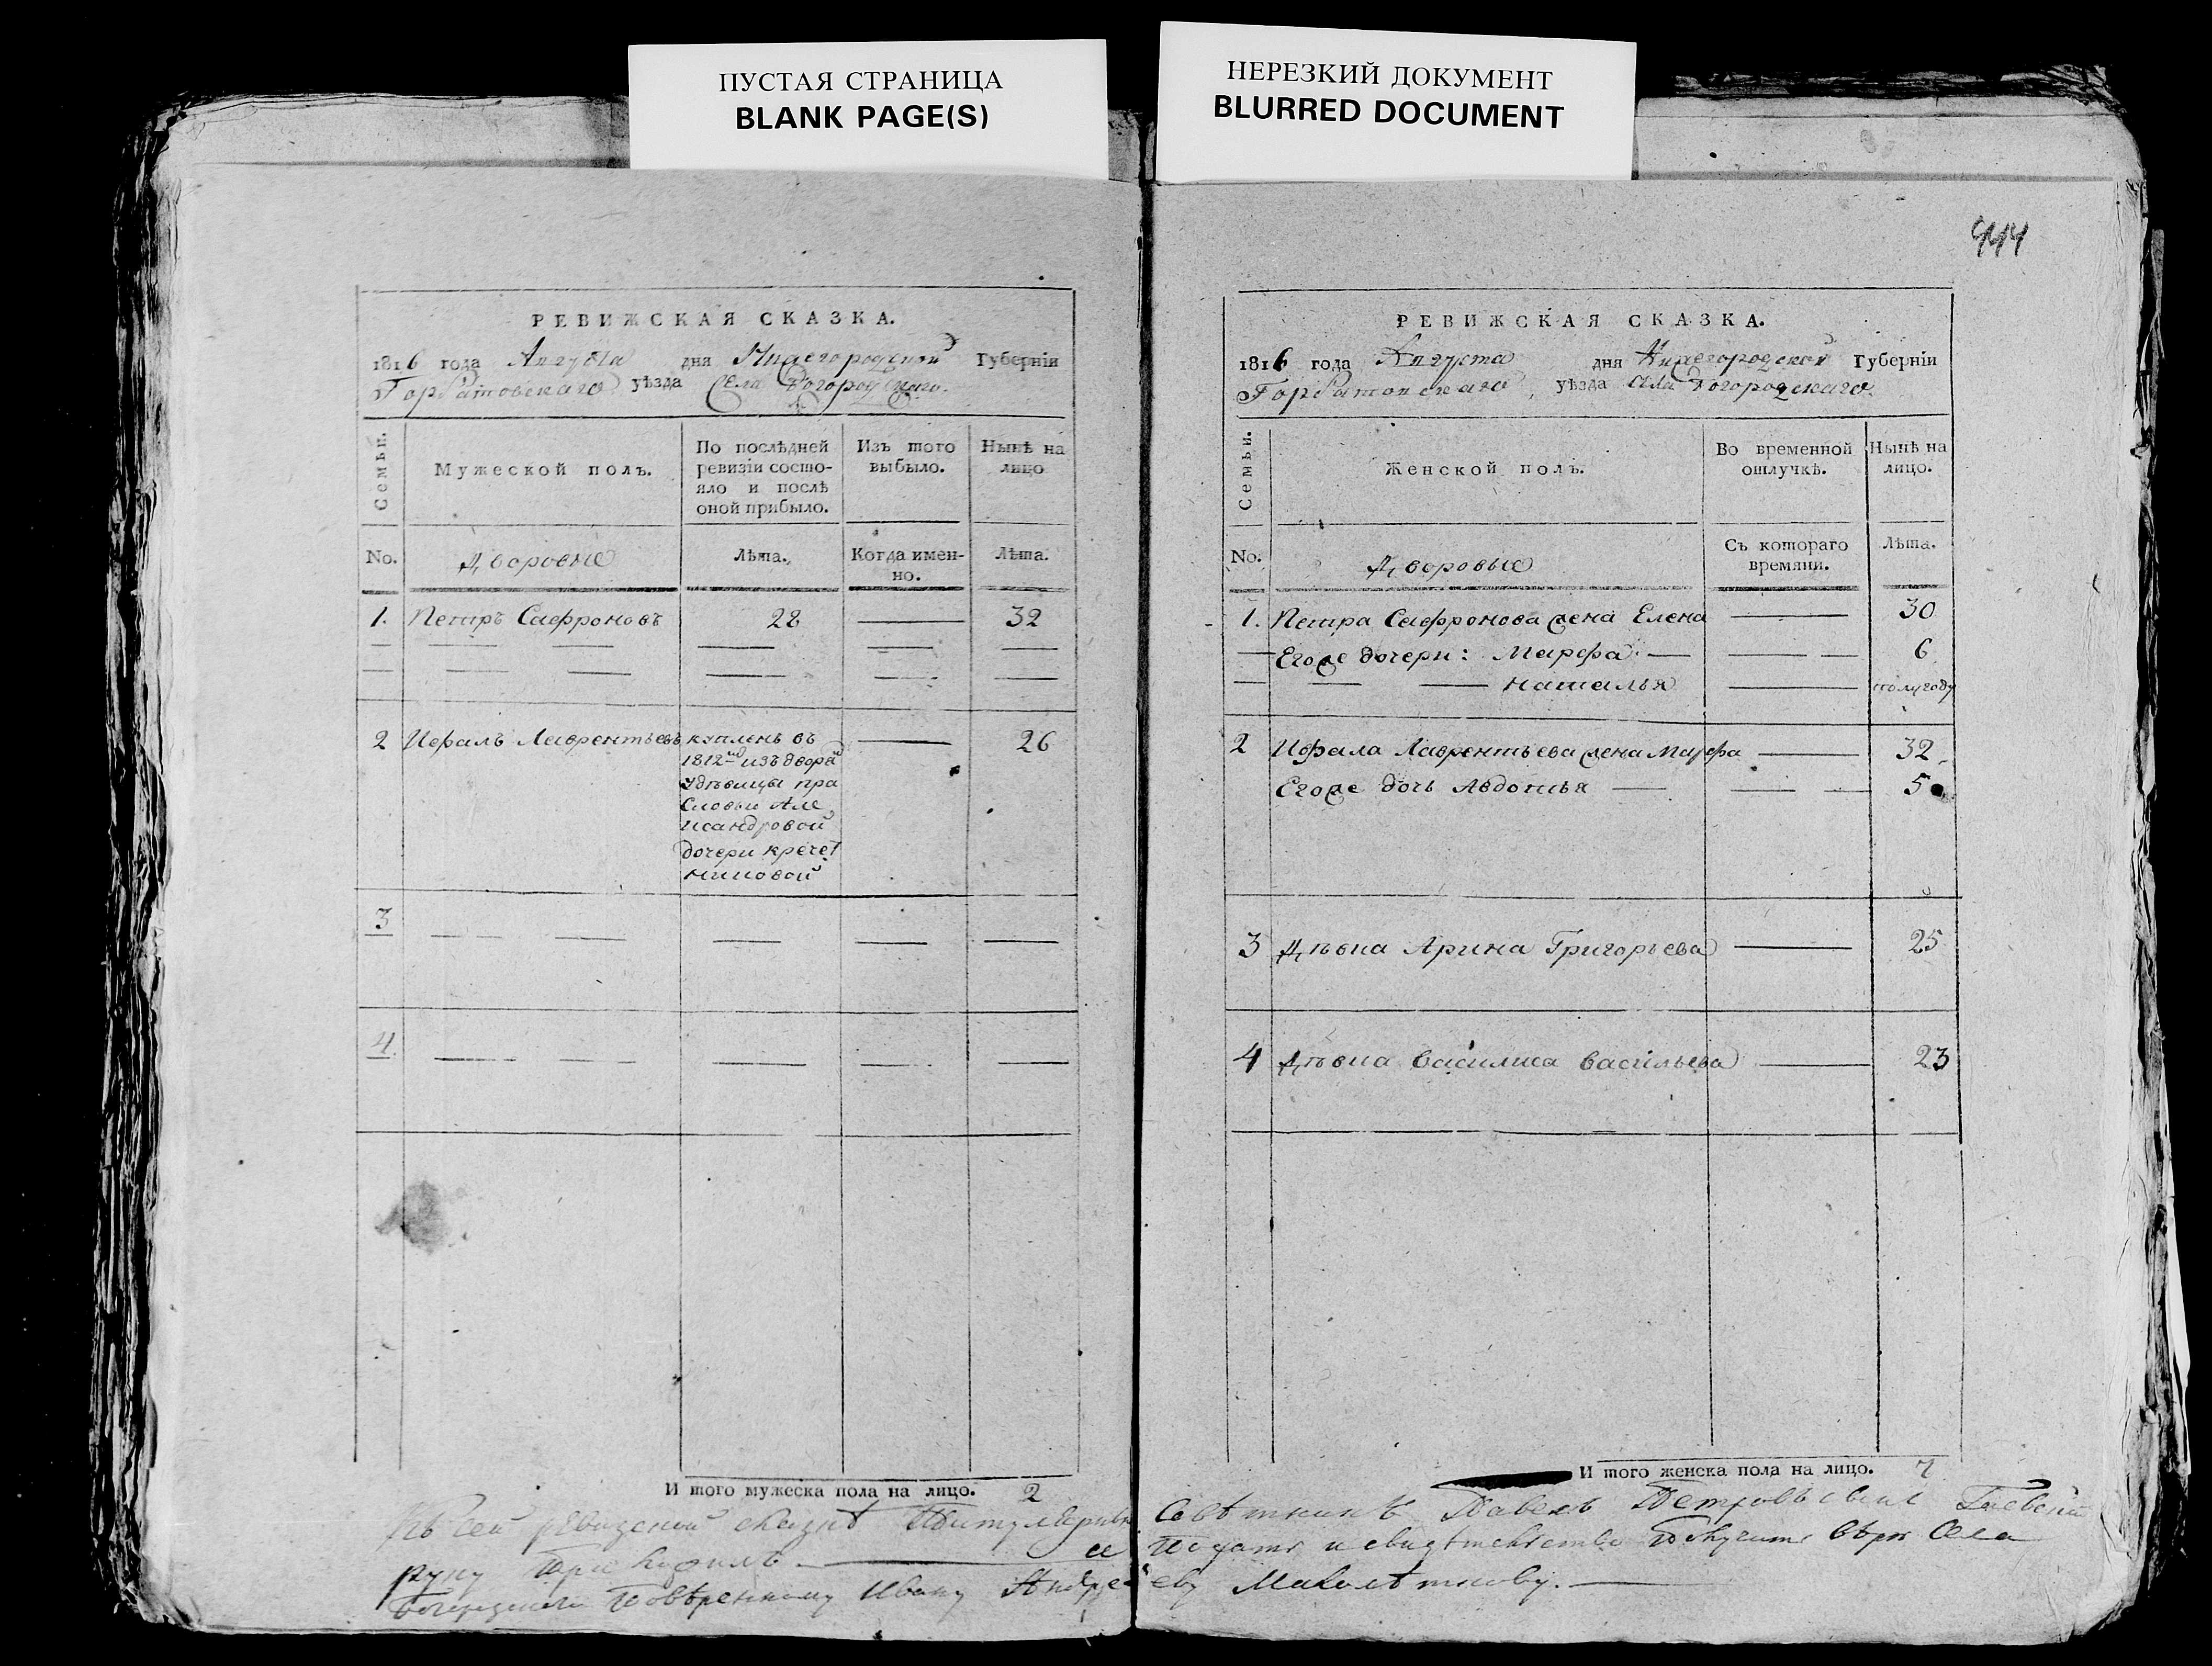 ПУСТАЯ СТРАНИЦА
BLANK PAGE(S)
НЕРЕЗКИЙ ДОКУМЕНТ
BLURRED DOCUMENT
РЕВИЖСКАЯ СКАЗКА.
1816 года Августа дня Нижегородской Губерніи
Горбатовскаго уѣзда Села Богородскаго.
Семьи.
Мужеской полъ.
По послѣдней
ревизіи состо-
яло и послѣ
оной прибыло.
Изъ того
выбыло.
Нынѣ на
лицо
No.
Дворовые
Лѣта.
Когда имен-
но.
Лѣта.
1. Петръ Сафроновъ 28 — 32
2 Иефалъ Лаврентьевъ куплень въ — 26
1812мъ изъ двора
Удѣвицы пра
сковьи Але
ксандровой
дочери крече
тниковой
3
4
И того мужеска пола на лицо. 2
Къ сей ревизской сказкѣ Титулярный
руку приложилъ — ее
Богородского Повѣренному Ивану Андре
444
РЕВИЖСКАЯ СКАЗКА.
1816 года Августа дня Нижегородской Губерніи
Горбатовскаго уѣзда села Богородскаго
Семьи.
Женской полъ.
Во временной
отлучкѣ.
Нынѣ на
лицо.
No.
Дворовые
Съ котораго
времяни.
Лѣта.
1. Петра Сафронова жена Елена — 30
Егоже дочери: Марфа — 6
Наталья — полугоду
2 Иефала Лаврентьева жена Марфа — 32
Егоже дочь Авдотья — 5
3 Дѣвка Арина Григорьева — 25
4 Дѣвка Василиса Васильева — 23
И того женска пола на лицо. 7
Совѣтникъ Павелъ Петровъ сынъ
подать и свидѣтельство получить вѣрю Села
еву Маколѣтнову.